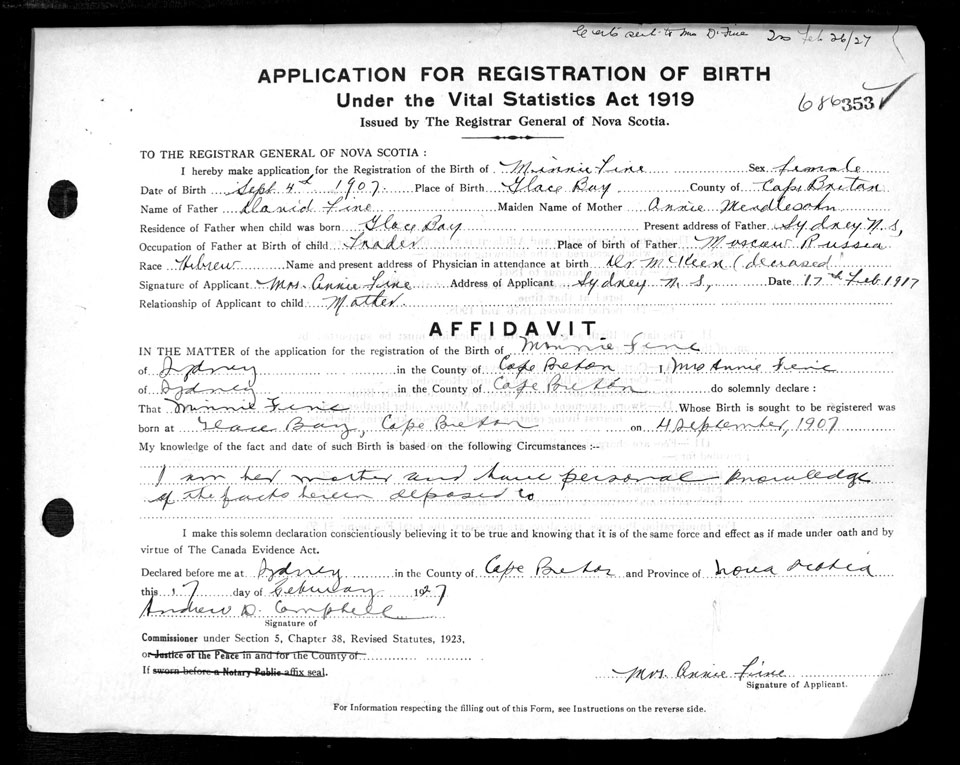 Certs sent to Mrs D. Fine Feb 26/27
APPLICATION FOR REGISTRATION OF BIRTH
Under the Vital Statistics Act 1919
686353
Issued by The Registrar General of Nova Scotia.
TO THE REGISTRAR GENERAL OF NOVA SCOTIA :
I hereby make application for the Registration of the Birth of Minnie Fine Sex female
Date of Birth Sept 4th 1907. Place of Birth Glace Bay County of Cape Breton
Name of Father David Fine Maiden Name of Mother Annie Mendlesohn
Residence of Father when child was born Glace Bay Present address of Father Sydney N.S,
Occupation of Father at Birth of child Trader Place of birth of Father Moscow Russia
Race Hebrew Name and present address of Physician in attendance at birth Dr. McKeen (deceased)
Signature of Applicant Mrs. Annie Fine Address of Applicant Sydney N.S, Date 17th Feb 1917
Relationship of Applicant to child Mother
AFFIDAVIT
IN THE MATTER of the application for the registration of the Birth of Minnie Fine
of Sydney in the County of Cape Breton I, Mrs Annie Fine
of Sydney in the County of Cape Breton do solemnly declare :
That Minnie Fine Whose Birth is sought to be registered was
born at Glace Bay, Cape Breton on 4 September, 1907
My knowledge of the fact and date of such Birth is based on the following Circumstances :--
I am her mother and have personal knowledge
of the facts herein deposed to
I make this solemn declaration conscientiously believing it to be true and knowing that it is of the same force and effect as if made under oath and by
virtue of The Canada Evidence Act.
Declared before me at Sydney in the County of Cape Breton and Province of Nova Scotia
this 17 day of February 1927
Andrew D. Campbell
Signature of
Commissioner under Section 5, Chapter 38, Revised Statutes, 1923,
or Justice of the Peace in and for the County of
If sworn before a Notary Public affix seal.
Mrs. Annie Fine
Signature of Applicant.
For Information respecting the filling out of this Form, see Instructions on the reverse side.